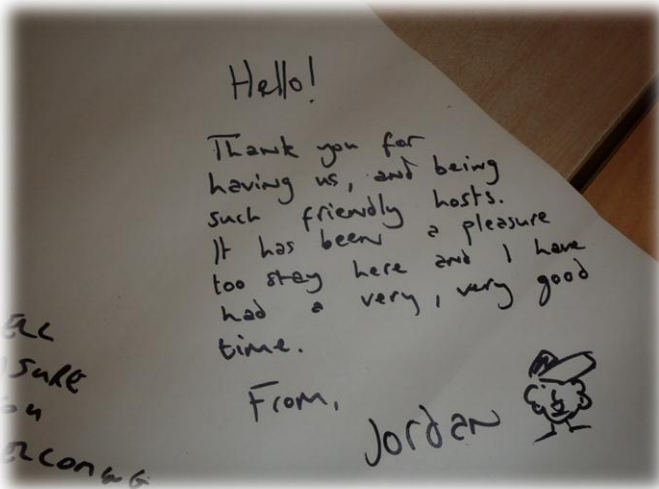 Hello!
Thank you for
having us, and being
such friendly hosts.
It has been a pleasure
too stay here and I have
had a very, very good
time.
From,
Jordan
SURE